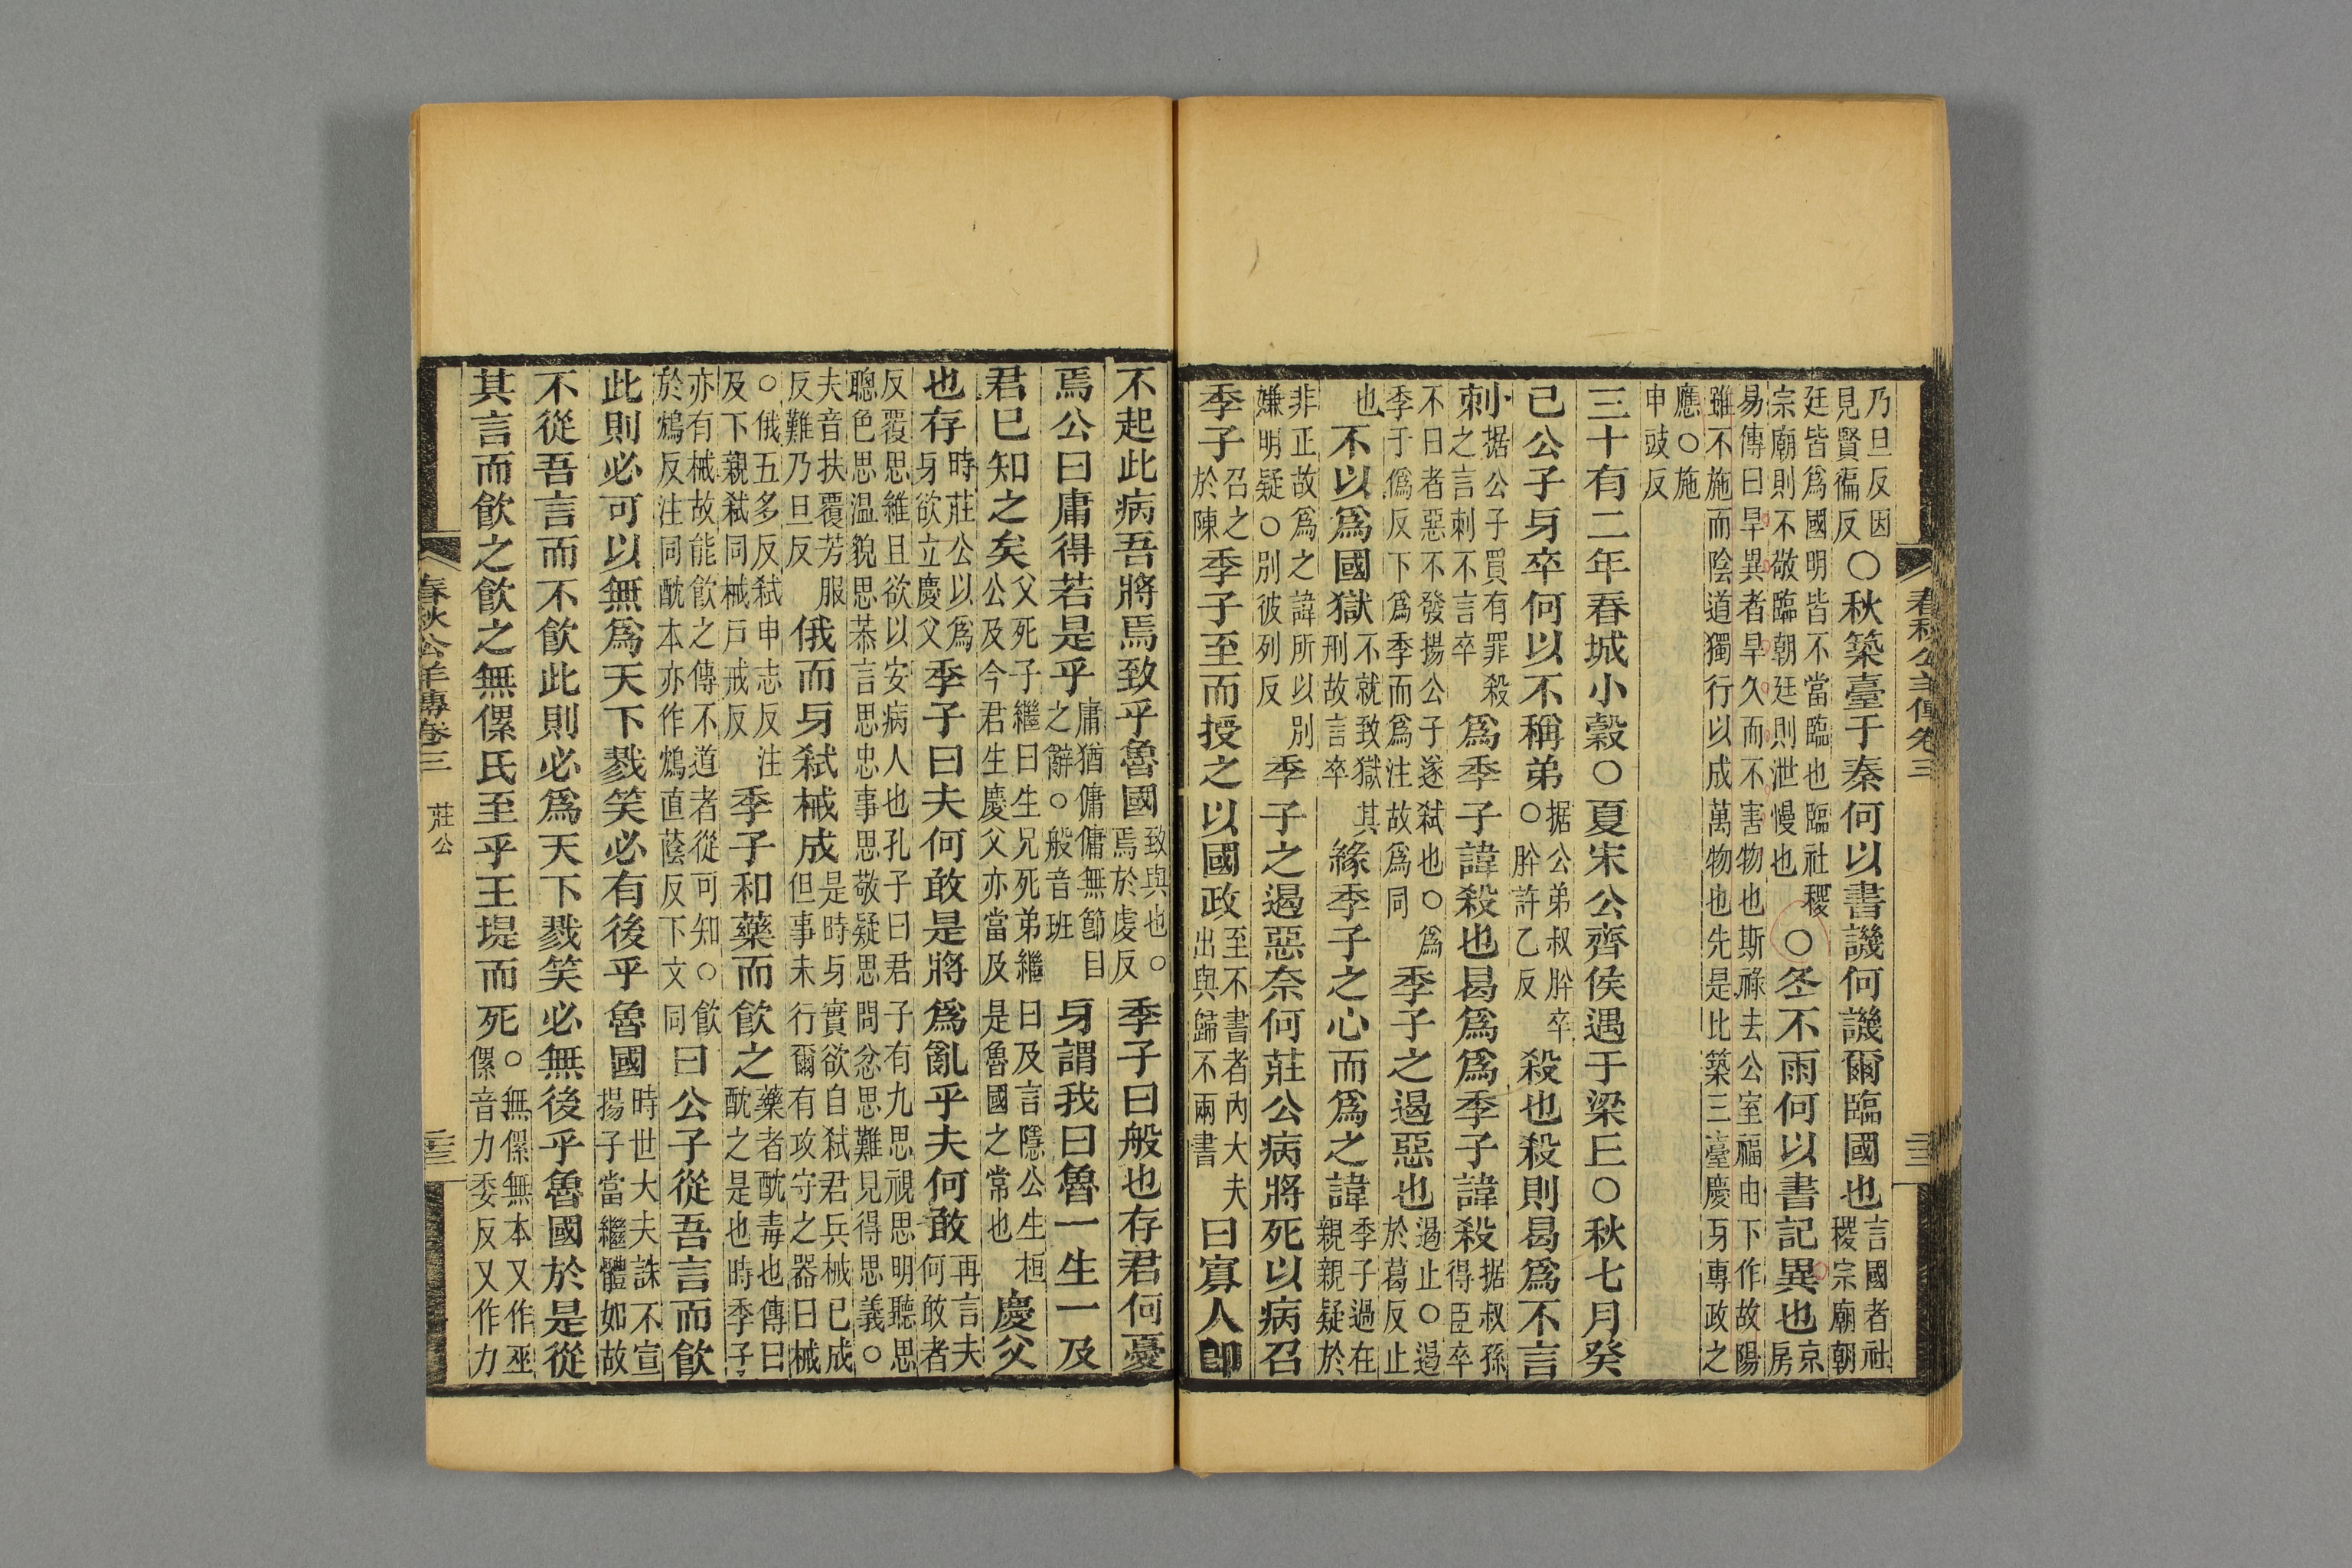 春秋公羊傳卷三
二十三
乃旦反因見賢徧反〇秋築臺于秦何以書譏何譏爾臨國也言國者社稷宗廟朝
廷皆爲國明皆不當臨也臨社稷宗廟則不敬臨朝廷則泄慢也〇冬不雨何以書記異也京房
易傳曰旱異者旱久而不害物也斯祿去公室福由下作故陽雖不施而陰道獨行以成萬物也先是比築三臺慶牙專政之
應〇施申豉反
三十有二年春城小穀〇夏宋公齊侯遇于梁丘〇秋七月癸
巳公子牙卒何以不稱弟据公弟叔肸卒〇肸許乙反殺也殺則曷爲不言
刺据公子買有罪殺之言刺不言卒爲季子諱殺也曷爲爲季子諱殺据叔孫得臣卒
不日者惡不發揚公子遂弒也〇爲季于僞反下爲季而爲注故爲同季子之遏惡也遏止〇遏於葛反止
也不以爲國獄不就致獄其刑故言卒緣季子之心而爲之諱季子過在親親疑於
非正故爲之諱所以別嫌明疑〇別彼列反季子之遏惡奈何莊公病將死以病召
季子召之於陳季子至而授之以國政至不書者內大夫出與歸不兩書曰寡人卽
不起此病吾將焉致乎魯國致與也〇焉於虔反季子曰般也存君何憂
焉公曰庸得若是乎庸猶傭傭無節目之辭〇般音班牙謂我曰魯一生一及
君已知之矣父死子繼曰生兄死弟繼曰及言隱公生桓公及今君生慶父亦當及是魯國之常也慶父
也存時莊公以爲牙欲立慶父季子曰夫何敢是將爲亂乎夫何敢再言夫何敢者
反覆思維且欲以安病人也孔子曰君子有九思視思明聽思聰色思溫貌思恭言思忠事思敬疑思問忿思難見得思義〇
夫音扶覆芳服反難乃旦反俄而牙弒械成是時牙實欲自弒君兵械已成但事未行爾有攻守之器曰械
〇俄五多反弒申志反注及下親弒同械戶戒反季子和藥而飮之藥者酖毒也傳曰酖之是也時季子
亦有械故能飮之傳不道者從可知〇飮於鴆反注同酖本亦作鴆直蔭反下文同曰公子從吾言而飮
此則必可以無爲天下戮笑必有後乎魯國時世大夫誅不宣揚子當繼體如故
不從吾言而不飮此則必爲天下戮笑必無後乎魯國於是從
其言而飮之飮之無傫氏至乎王堤而死〇無傫無本又作巫傫音力委反又作力
春秋公羊傳卷三
莊公
二十三